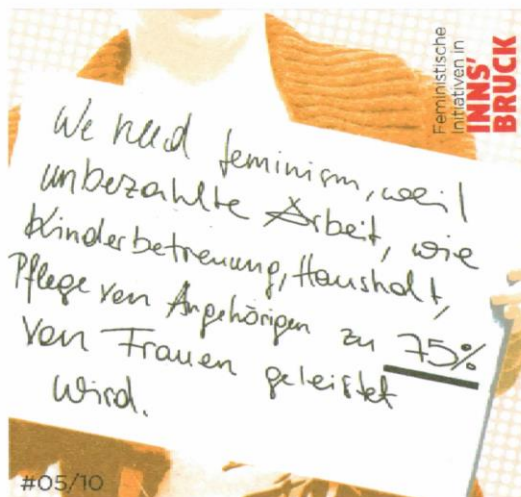 Feministische
Initiativen in
INNS'
BRUCK
We need feminism, weil
unbezahlte Arbeit, wie
Kinderbetreuung, Haushalt,
Pflege von Angehörigen zu 75%
von Frauen geleistet
wird.
#05/10